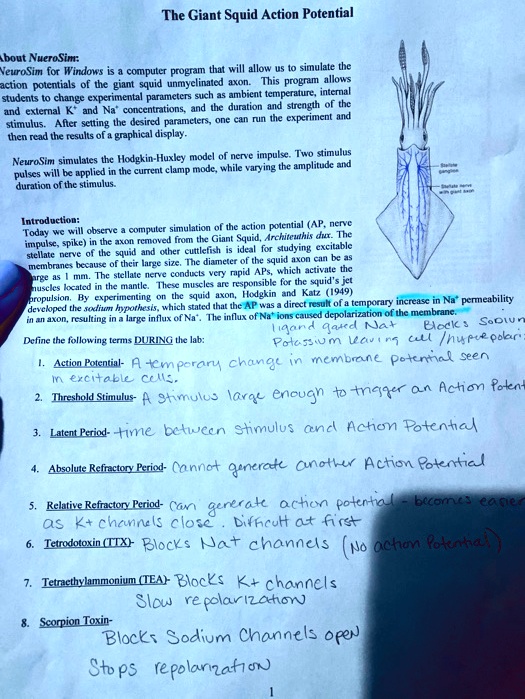 The Giant Squid Action Potential
About NueroSim:
NeuroSim for Windows is a computer program that will allow us to simulate the
action potentials of the giant squid unmyelinated axon. This program allows
students to change experimental parameters such as ambient temperature, internal
and external K+ and Na+ concentrations, and the duration and strength of the
stimulus. After setting the desired parameters, one can run the experiment and
then read the results of a graphical display.
NeuroSim simulates the Hodgkin-Huxley model of nerve impulse. Two stimulus
pulses will be applied in the current clamp mode, while varying the amplitude and
duration of the stimulus.
Stellate
ganglion
Stellate nerve
with giant axon
Introduction:
Today we will observe a computer simulation of the action potential (AP, nerve
impulse, spike) in the axon removed from the Giant Squid, Architeuthis dux. The
stellate nerve of the squid and other cuttlefish is ideal for studying excitable
membranes because of their large size. The diameter of the squid axon can be as
large as 1 mm. The stellate nerve conducts very rapid APs, which activate the
muscles located in the mantle. These muscles are responsible for the squid's jet
propulsion. By experimenting on the squid axon, Hodgkin and Katz (1949)
developed the sodium hypothesis, which stated that the AP was a direct result of a temporary increase in Na+ permeability
in an axon, resulting in a large influx of Na+. The influx of Na+ ions caused depolarization of the membrane.
ligand gated Nat Blocks Sodium
Potassium leaving cell /hyperpolari
Define the following terms DURING the lab:
1. Action Potential- A temporary change in membrane potential seen
in excitable cells.
2. Threshold Stimulus- A stimulus large enough to trigger an Action Potent
3. Latent Period- time between stimulus and Action Potential
4. Absolute Refractory Period- Cannot generate another Action Potential
5. Relative Refractory Period- Can generate action potential - becomes easier
as K+ channels close. Difficult at first
6. Tetrodotoxin (TTX)- Blocks Na+ channels (No action Potential)
7. Tetraethylammonium (TEA)- Blocks K+ channels
Slow repolarization
8. Scorpion Toxin-
Blocks Sodium Channels open
Stops repolarization
1